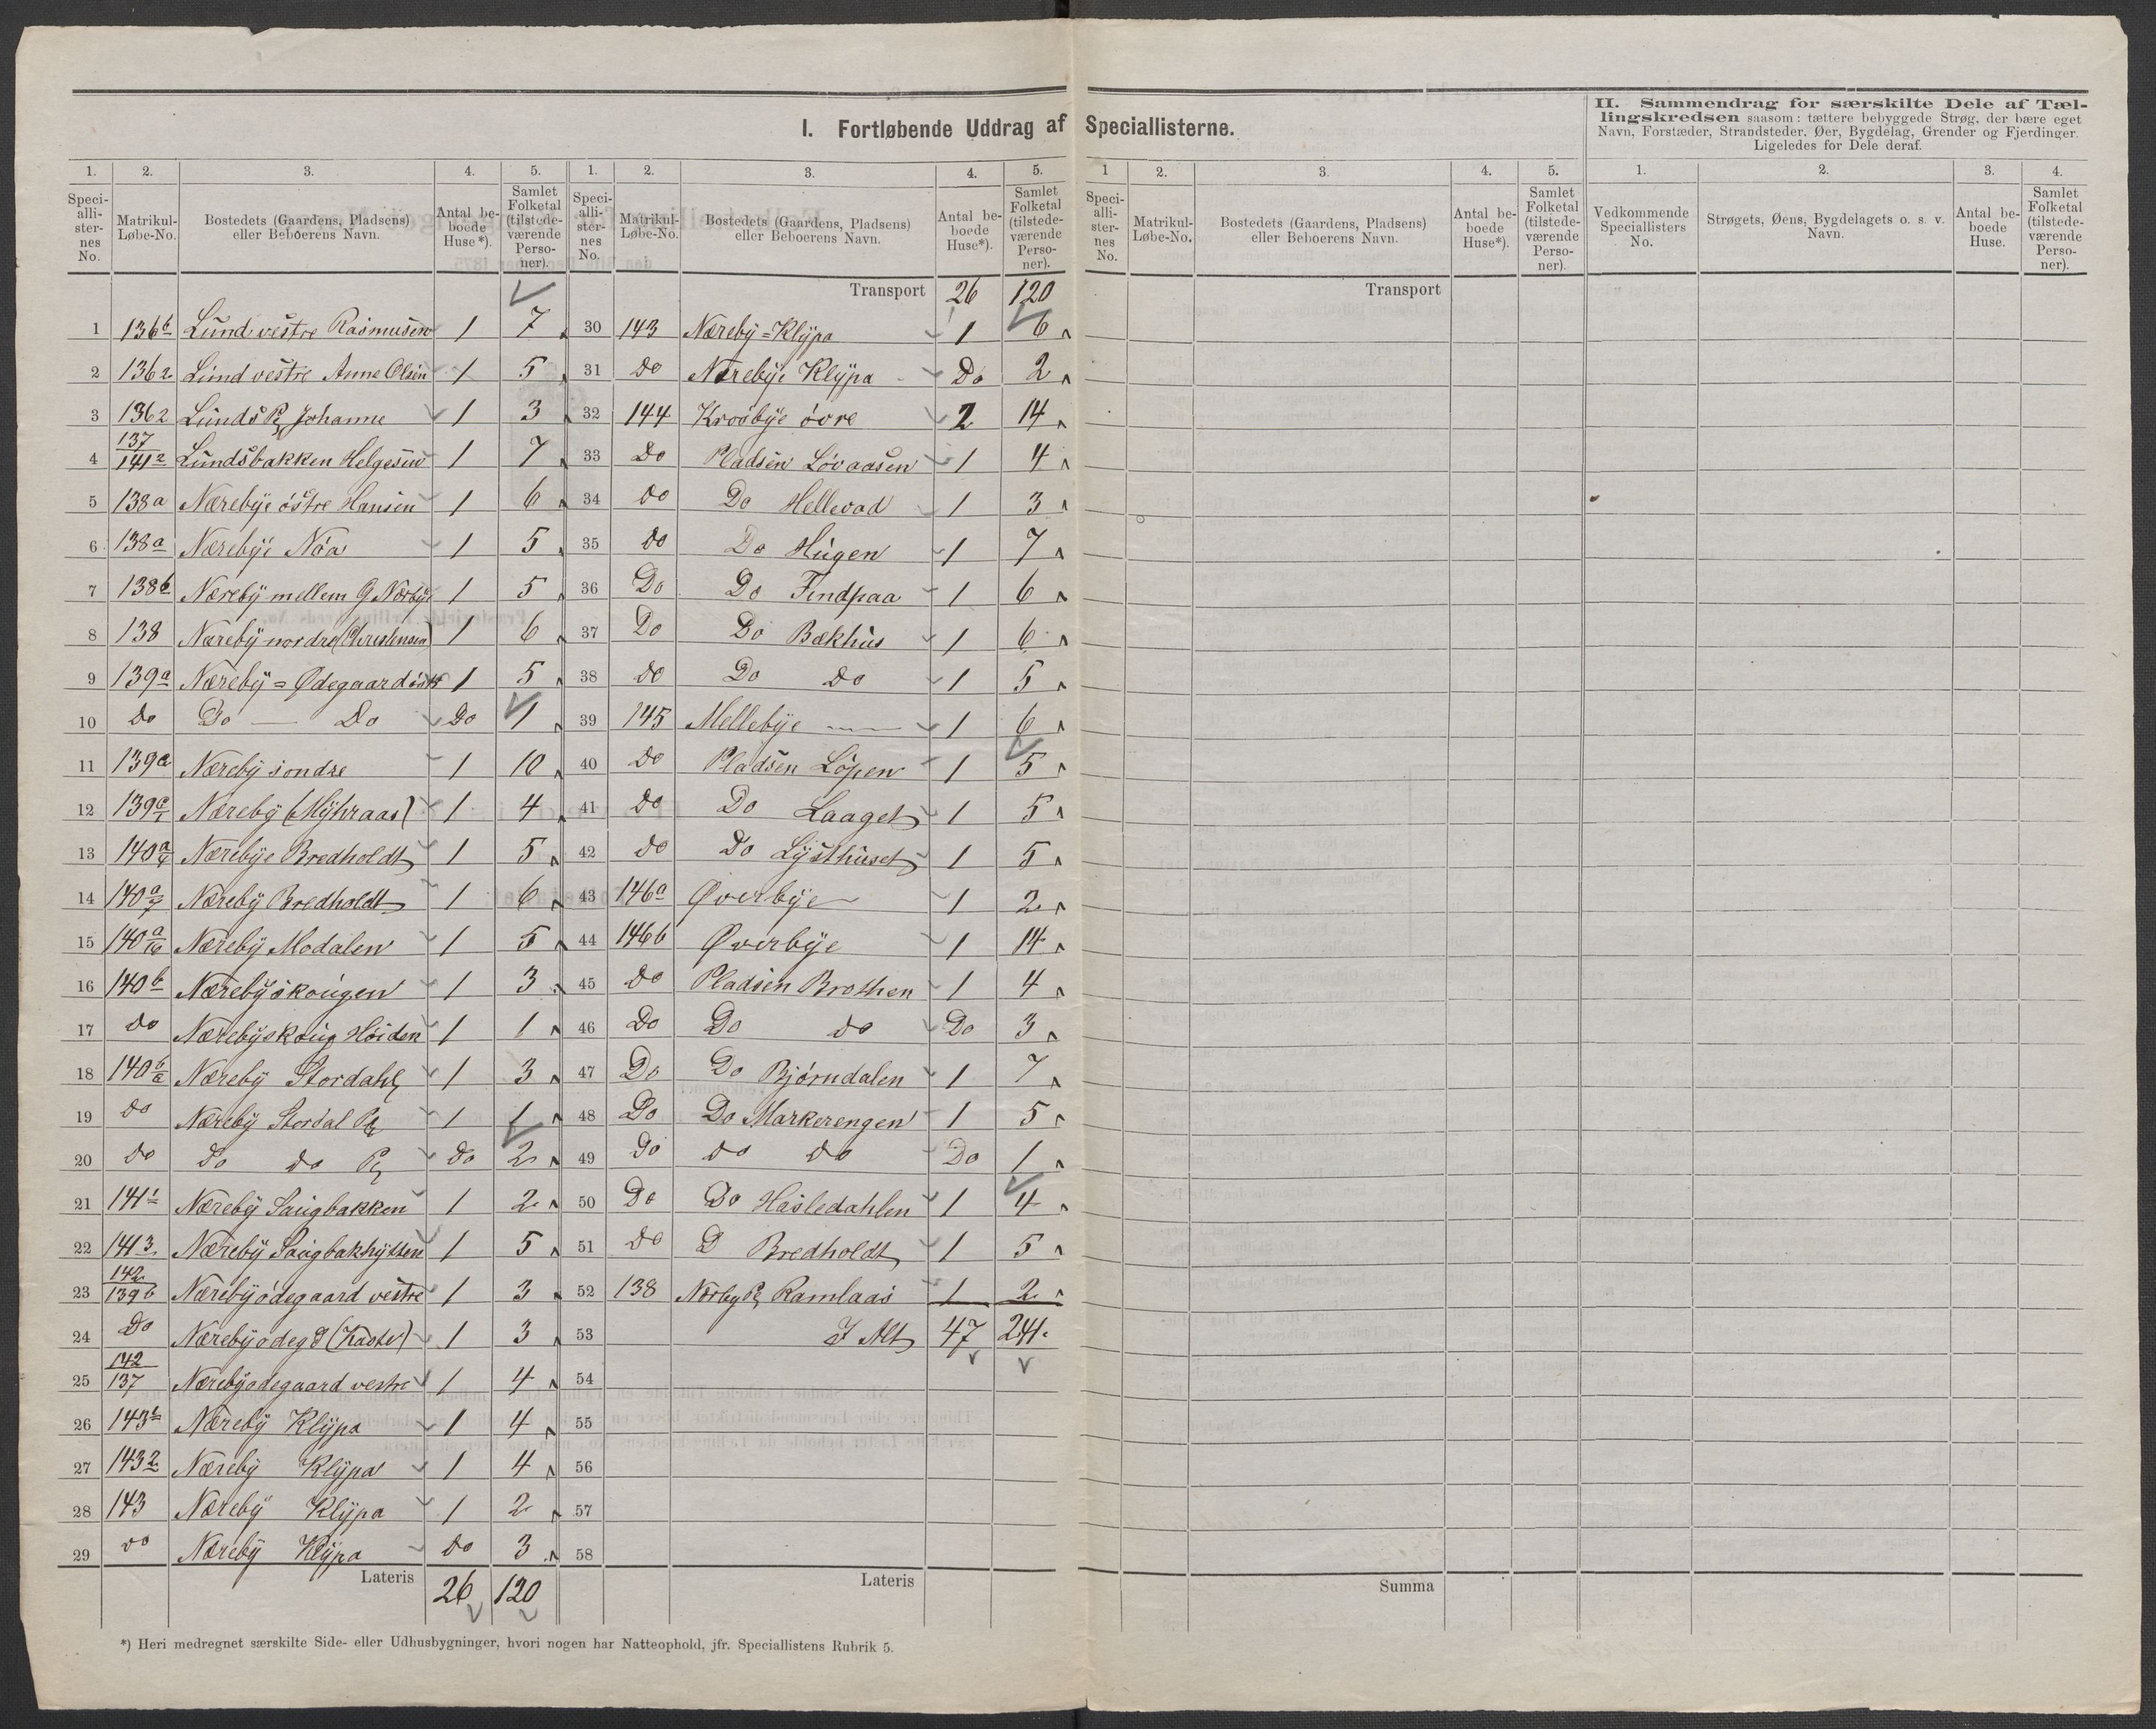 I. Fortløbende Uddrag af Speciallisterne.
II. Sammendrag for særskilte Dele af Tællingskredsen saasom: tættere bebyggede Strøg, der bære eget Navn, Forstæder, Strandsteder, Øer, Bygdelag, Grender og Fjerdinger. Ligeledes for Dele deraf.
1. 2. 3. 4. 5.
Speciallisternes No. Matrikul-Løbe-No. Bostedets (Gaardens, Pladsens) eller Beboerens Navn. Antal beboede Huse*). Samlet Folketal (tilstedeværende Personer).
1 136b Lund vestre Rasmusen 1 7
2 1362 Lund vestre Anne Olsen 1 5
3 1362 Lunds Pl Johanne 1 3
4 137 141 2 Lundsbakken Helgesen 1 7
5 138a Nærebye östre Hansen 1 6
6 138a Nærebye Nöa 1 5
7 138b Næreby mellem G Nærbye 1 5
8 138 Næreby nordre (Christensen) 1 6
9 139a Næreby = Ødegaard östr 1 5
10 do Do — Do Do 1
11 139a Næreby söndre 1 10
12 139a/1 Næreby (Myhraas) 1 4
13 140a/4 Nærebye Bredholdt 1 5
14 140a/7 Næreby Bredholdt 1 6
15 140a/16 Næreby Modalen 1 5
16 140b Nærebyskougen 1 3
17 do Nærebyskoug Höiden 1 1
18 140b/a Næreby Stordahl 1 3
19 do Næreby Stordal Pl 1 1
20 do do do Pl do 2
21 141 1 Næreby Saugbakken 1 2
22 141 3 Næreby Saugbakhytten 1 5
23 142 139b Nærebyödegaard vestre 1 3
24 Do Nærebyödegd (Kaste) 1 3
25 142 137 Nærebyödegaard vestre 1 4
26 143 1 Næreby Klypa 1 4
27 143 2 Næreby Klypa 1 4
28 143 Næreby Klypa 1 2
29 do Næreby Klypa do 3
Lateris 26 120
1. 2. 3. 4. 5.
Speciallisternes No. Matrikul-Løbe-No. Bostedets (Gaardens, Pladsens) eller Beboerens Navn. Antal beboede Huse*). Samlet Folketal (tilstedeværende Personer).
Transport 26 120
30 143 Næreby = Klypa 1 6
31 do Nærebye Klypa Do 2
32 144 Krosbye övre 2 14
33 Do Pladsen Lövaasen 1 4
34 do Do Hellevad 1 3
35 do Do Hugen 1 7
36 Do Do Findpaa 1 6
37 Do Do Bækhus 1 6
38 do Do do 1 5
39 145 Mellebye 1 6
40 do Pladsen Löpen 1 5
41 do Do Laaget 1 5
42 do Do Lysthuset 1 5
43 146a Øverbye 1 2
44 146b Øverbye 1 14
45 do Pladsen Brothen 1 4
46 Do Do do Do 3
47 Do Do Björndalen 1 7
48 Do Do Markerengen 1 5
49 Do do do Do 1
50 Do Do Hasledahlen 1 4
51 do D Bredholdt 1 5
52 138 Nærby Pl Ramlaas 1 2
53 I Alt 47 241
54
55
56
57
58
Lateris
1 2. 3. 4. 5.
Speciallisternes No. Matrikul-Løbe-No. Bostedets (Gaardens, Pladsens) eller Beboerens Navn. Antal beboede Huse*). Samlet Folketal (tilstedeværende Personer).
Transport
Summa
1. 2. 3. 4.
Vedkommende Speciallisters No. Strøgets, Øens, Bygdelagets o. s. v. Navn. Antal beboede Huse. Samlet Folketal (tilstedeværende Personer).
*) Heri medregnet særskilte Side- eller Udhusbygninger, hvori nogen har Natteophold, jfr. Speciallistens Rubrik 5.